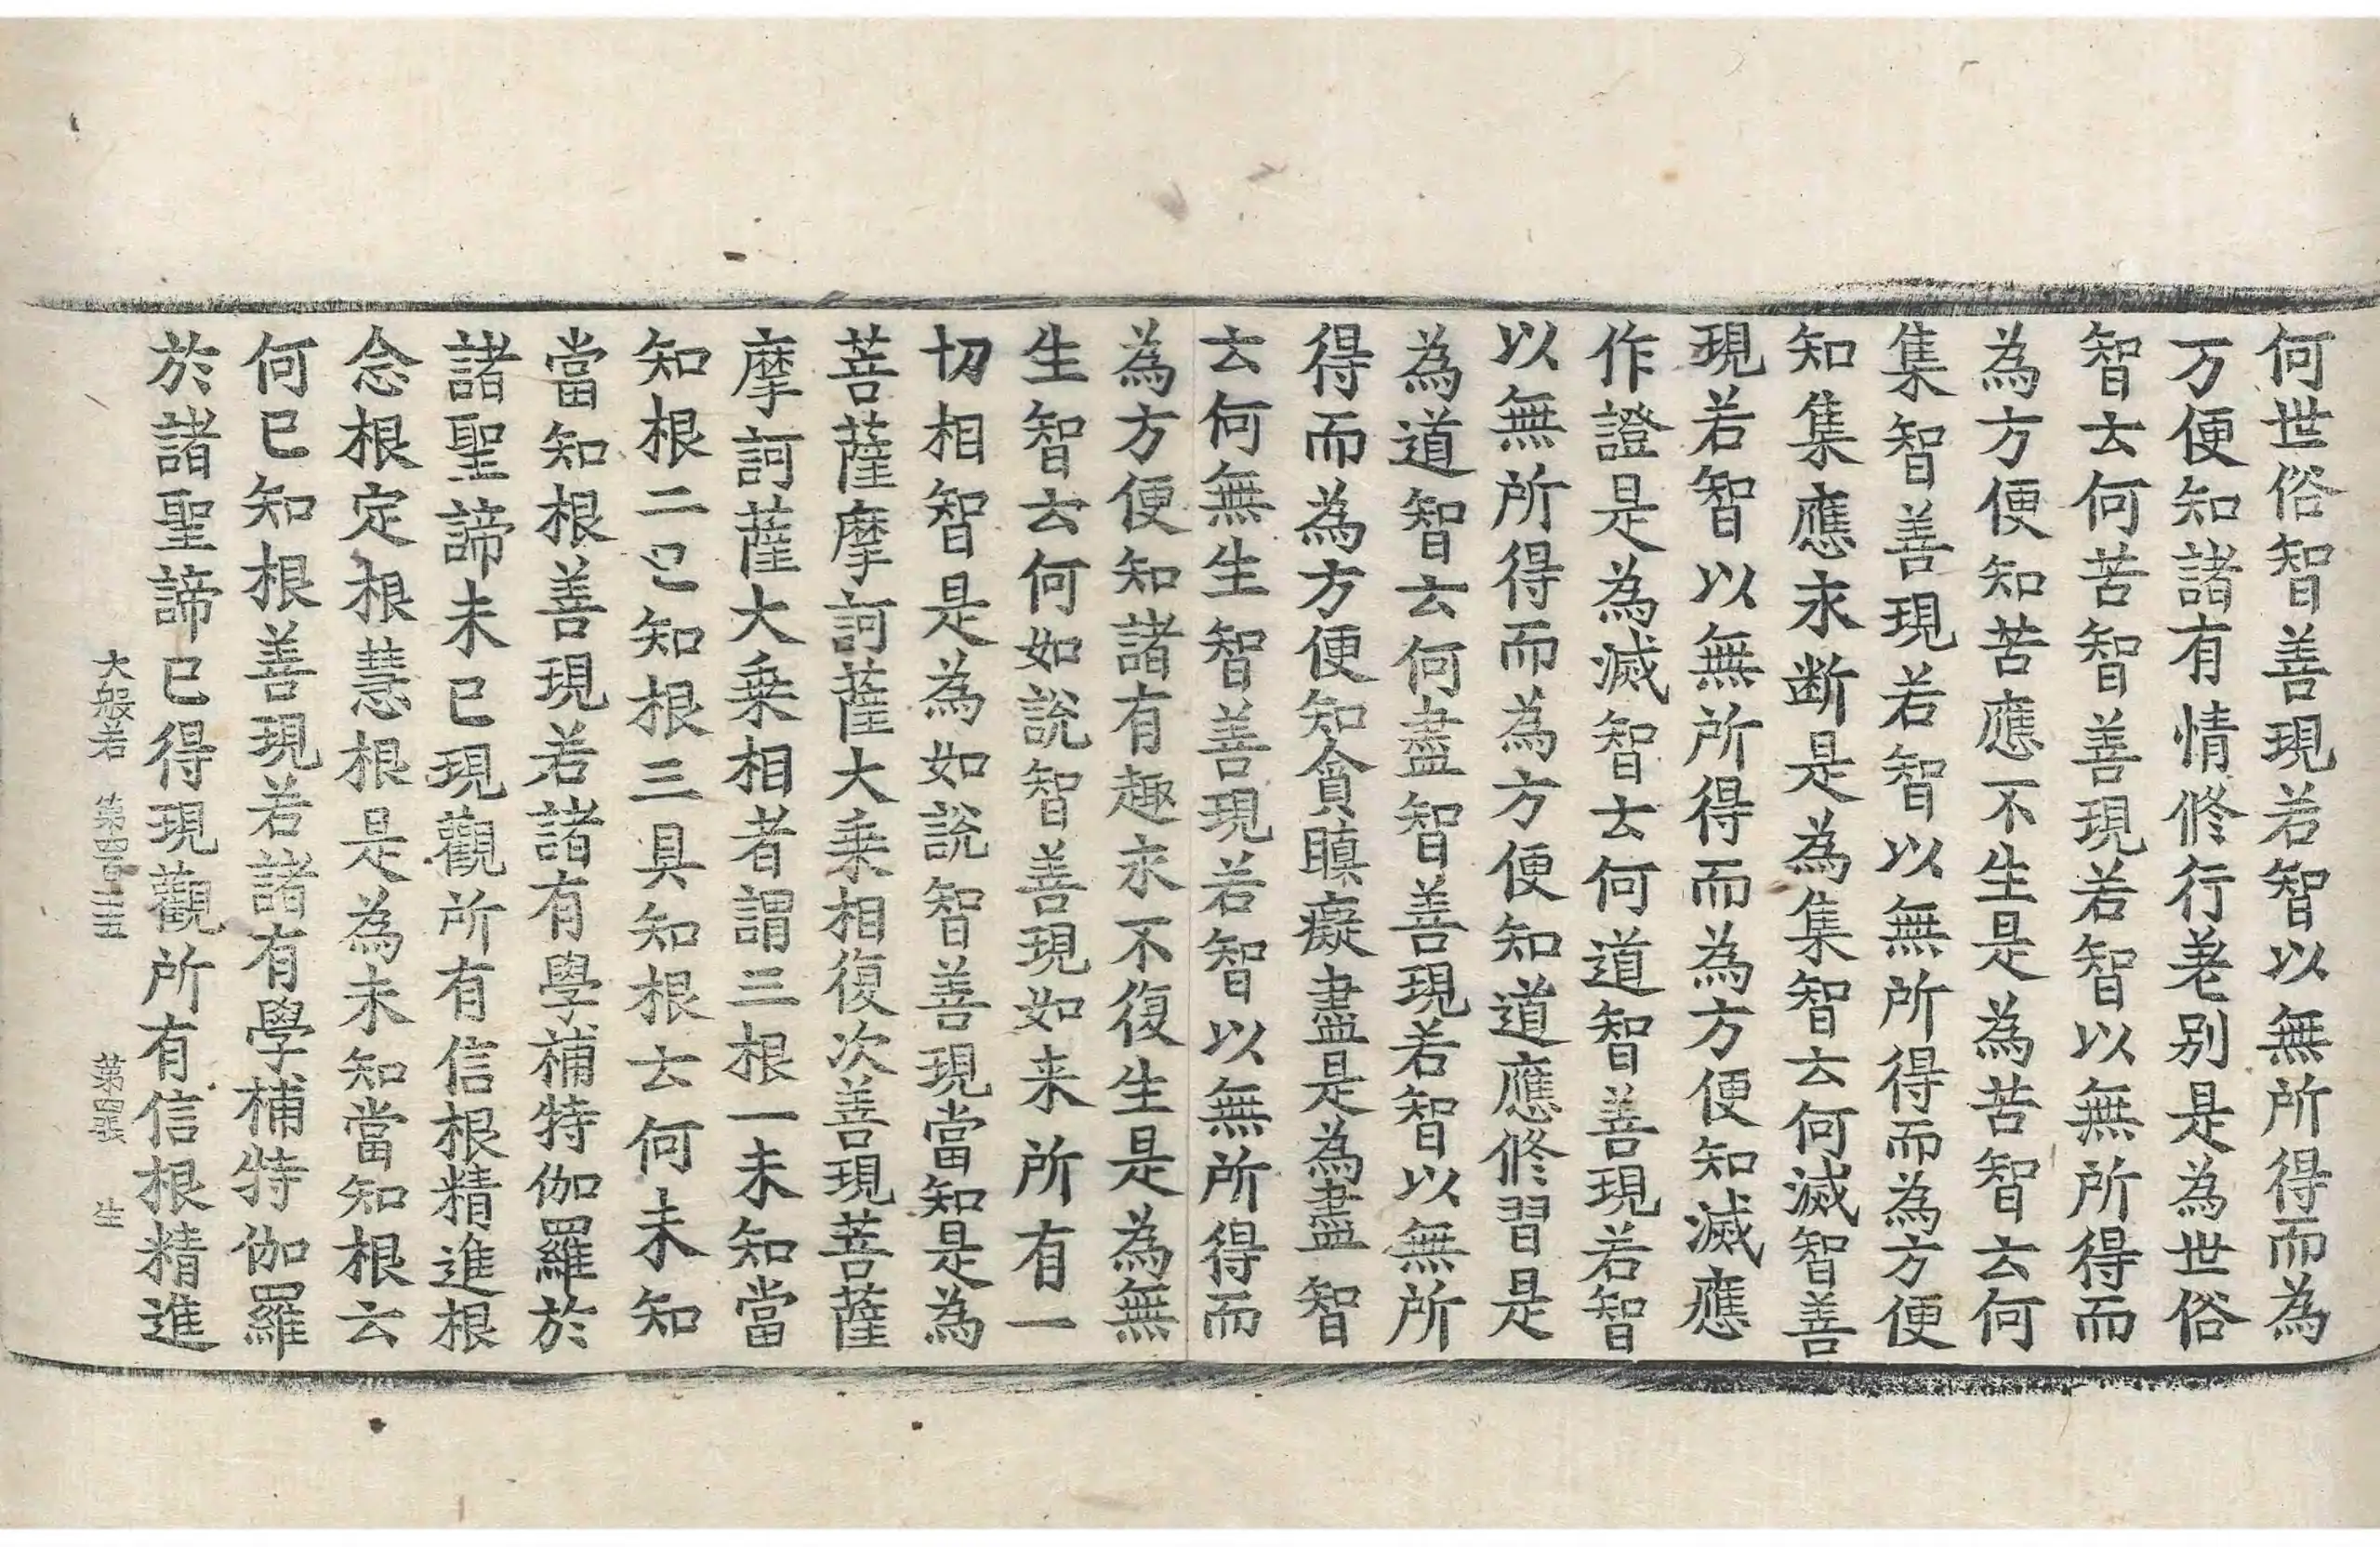 何世俗智善現若智以無所得而為
万便知諸有情修行差別是為世俗
智云何苦智善現若智以無所得而
為方便知苦應不生是為苦智云何
集智善現若智以無所得而為方便
知集應永断是為集智云何滅智善
現若智以無所得而為方便知滅應
作證是為滅智云何道智善現若智
以無所得而為方便知道應修習是
為道智云何盡智善現若智以無所
得而為方便知貪瞋癡盡是為盡智
云何無生智善現若智以無所得而
為方便知諸有趣永不復生是為無
生智云何如說智善現如来所有一
切相智是為如說智善現當知是為
菩薩摩訶薩大乗相復次善現菩薩
摩訶薩大乗相者謂三根一未知當
知根二已知根三具知根云何未知
當知根善現若諸有學補特伽羅於
諸聖諦未已現觀所有信根精進根
念根定根慧根是為未知當知根云
何已知根善現若諸有學補特伽羅
於諸聖諦已得現觀所有信根精進
大般若 第四百十五 第四張 生